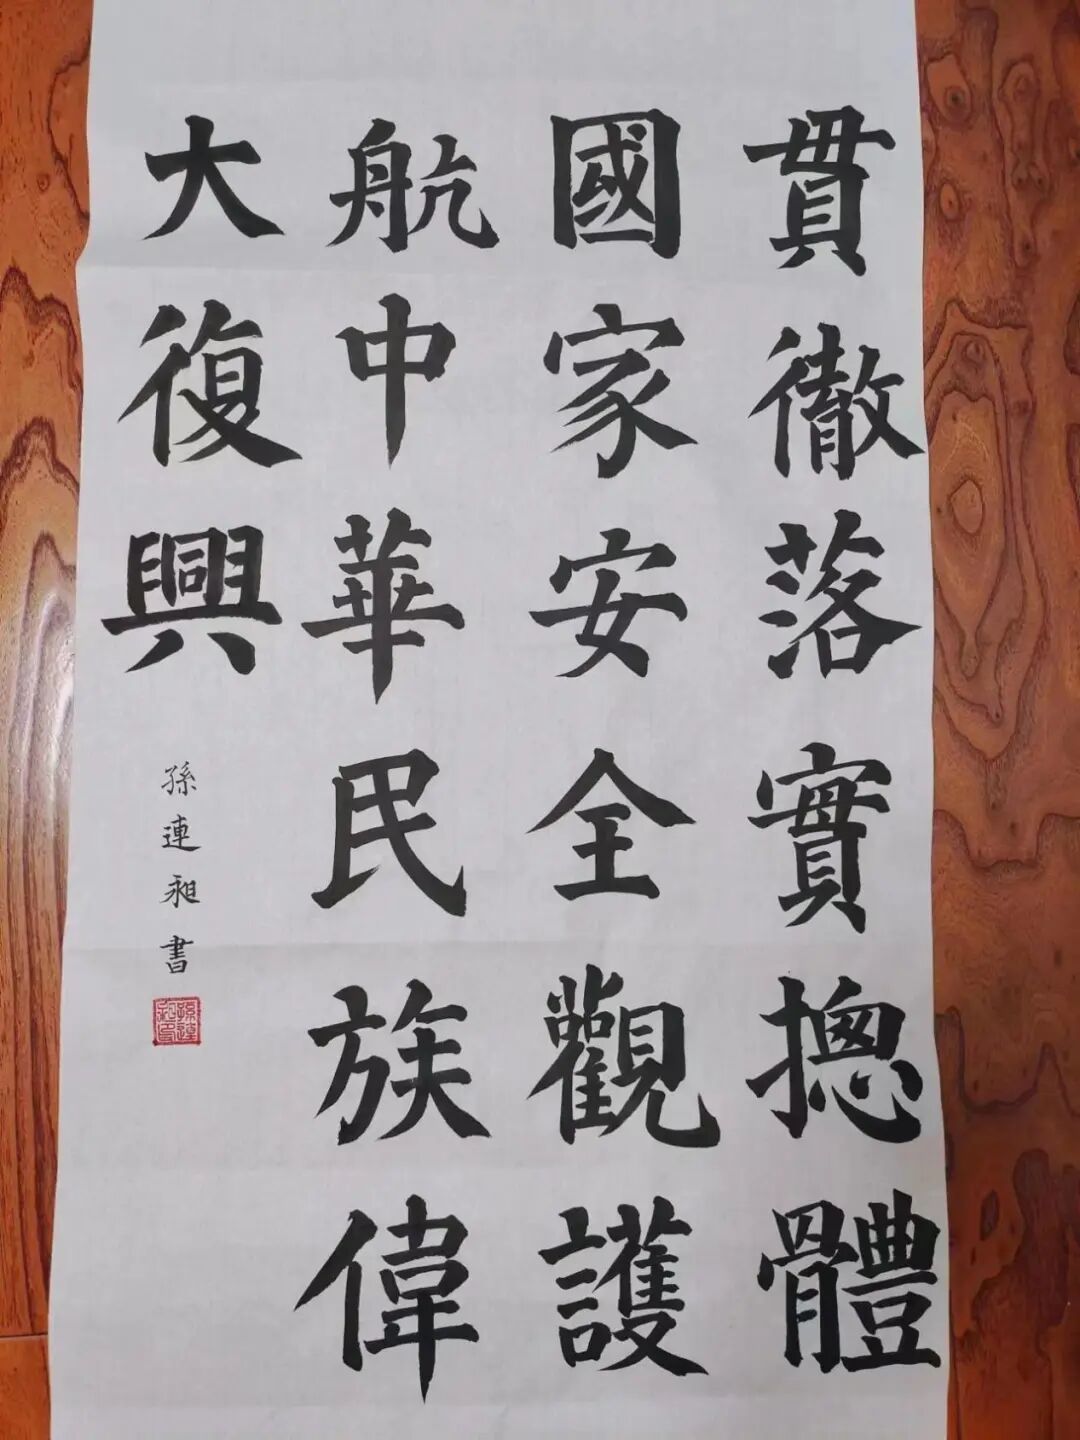 貫徹落實摠體
國家安全觀護
航中華民族偉
大復興
孫連昶書